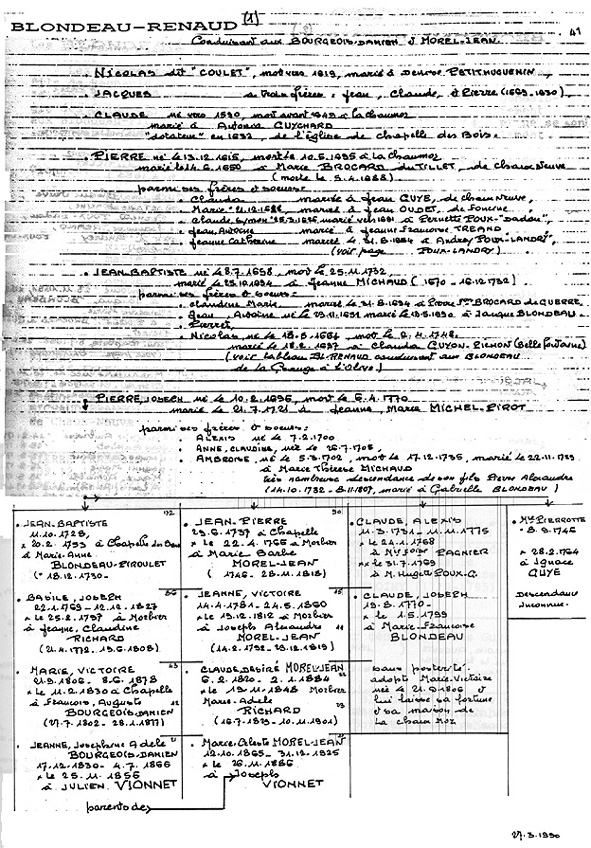 BLONDEAU-RENAUD (1)
41
Conduisant aux BOURGEOIS-DAMIEN & MOREL-JEAN
. NICOLAS dit "COULET", mort vers 1619, marié à Denyse PETITHUGUENIN
. JACQUES a trois frères : Jean, Claude, & Pierre (1593-1630)
. CLAUDE né vers 1590, mort avant à la chaumoz
marié à Antoine GUYCHARD
"dotateur" en 1632, de l'Église de Chapelle des Bois.
. PIERRE né le 13.12.1615, mort le 10.6.1695 à la Chaumoz
marié le 14.6.1650 à Marie BROCARD du TILLET, de Chaux Neuve
(morte le 5.4.1688)
parmi ses frères & soeurs :
. Clauda mariée à Jean GUYE, de Chaux Neuve,
. Marie mariée à Jean OUDET, de Foncine
. Claude, Symon marié vers 1661 à Pernette POUX-"Dadou",
. Jean, Antoine marié à Jeanne Françoise TREAND
. Jeanne Catherine mariée le 31.8.1664 à Andrey POUX-LANDRY,
(voir page POUX-LANDRY)
. JEAN-BAPTISTE né le 8.7.1658, mort le 25.11.1732,
marié le 25.12.1694 à Jeanne MICHAUD (1670 - 16.12.1732)
parmi ses frères & soeurs :
. Claudine Marie mariée le 31.8.1694 à Pierre BROCARD de GUERRE
. Jean Antoine né le 23.11.1651 marié le 12.5.1690 à Jacqua BLONDEAU.
. Pierret
. Nicolas, né le 18.5.1664 mort le 6.4.1748
marié le 18.2.1697 à Clauda GUYON-PICHON (Bellefontaine)
(voir tableau BL-RENAUD conduisant aux BLONDEAU
de la Grange à l'Olive)
. PIERRE, JOSEPH né le 10.2.1696, mort le 6.4.1770
marié le 21.7.1721 à Jeanne, Marie MICHEL-PIROT
parmi ses frères & soeurs :
. ALEXIS né le 7.2.1700
. ANNE, CLAUDINE, née le 26.7.1705,
. AMBROISE, né le 5.3.1702, mort le 17.12.1735, marié le 22.11.1723
à Marie Thérèse MICHAUD
très nombreuse descendance de son fils Pierre Alexandre
(14.10.1732 - 8.11.1807, marié à Gabrielle BLONDEAU)
. JEAN-BAPTISTE
11.10.1728,
x 20.2.1753 à Chapelle des Bois
à Marie-Anne
BLONDEAU-PIROULET
(° 18.12.1730-
. JEAN-PIERRE
29.6.1737 à Chapelle
x le 22.4.1766 à Morbier
à Marie Barbe
MOREL-JEAN
(1746 - 28.11.1818)
. CLAUDE, ALEXIS
11.3.1731 - 11.11.1775
x le 24.1.1768
à PAGNIER
x le 31.7.1769
à M. Hugette POUX-G.
. Mie PIERROTTE
° 8.9.1745
x 28.2.1764
à Ignace
GUYE
Descendance
inconnue.
. BASILE, JOSEPH
22.1.1763 - 12.12.1827
x le 25.2.1797 à Morbier
à Jeanne, Claudine
RICHARD
(21.4.1772 - 19.6.1808)
. JEANNE, VICTOIRE
14.4.1781 - 24.5.1860
x le 19.12.1812 à Morbier
à Joseph Alexandre
MOREL-JEAN
(14.2.1792 - 23.12.1819)
. CLAUDE, JOSEPH
19.8.1770 -
x le 1.5.1799
à Marie-Françoise
BLONDEAU
. MARIE, VICTOIRE
21.9.1806 - 8.6.1878
x le 11.2.1830 à Chapelle
à François, Auguste
BOURGEOIS-DAMIEN
(27.7.1802 - 28.1.1877)
. CLAUDE, DESIRÉ MOREL-JEAN
6.2.1820 - 2.1.1884
x le 19.11.1848 Morbier
Marie-Adèle
RICHARD
(16.7.1823 - 10.11.1901)
sans postérité.
adopte Marie-Victoire
née le 21.9.1806 &
lui laisse sa fortune
& sa maison de
la chaumoz
. JEANNE, Josephine Adèle
BOURGEOIS-DAMIEN
17.12.1830 - 4.7.1866
x le 25.11.1856
à JULIEN VIONNET
. Marie-Céleste MOREL-JEAN
12.10.1865 - 31.12.1925
x le 26.11.1886
à Joseph
VIONNET
parents de
27.3.1990